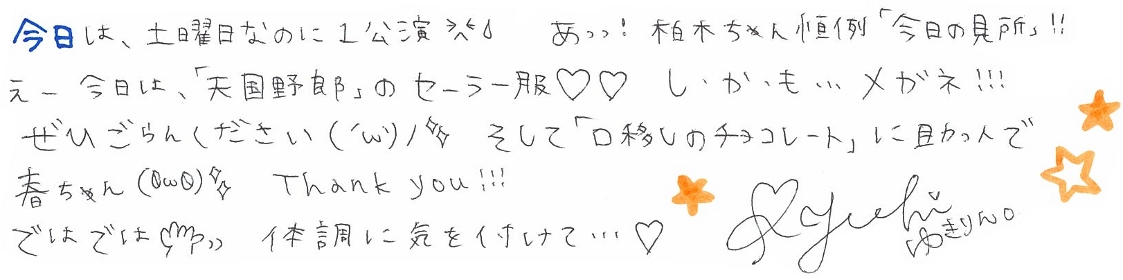 今日は、土曜日なのに1公演 あっっ! 柏木ちゃん恒例「今日の見所」!!
えー 今日は、「天国野郎」のセーラー服♡♡ し、か、も… メガネ!!!
ぜひごらんください(´ω`)ノ そして「口移しのチョコレート」に助っ人で
春ちゃん(ΘωΘ) Thank you!!!
ではでは 体調に気を付けて…♡
Yuki
ゆきりん。